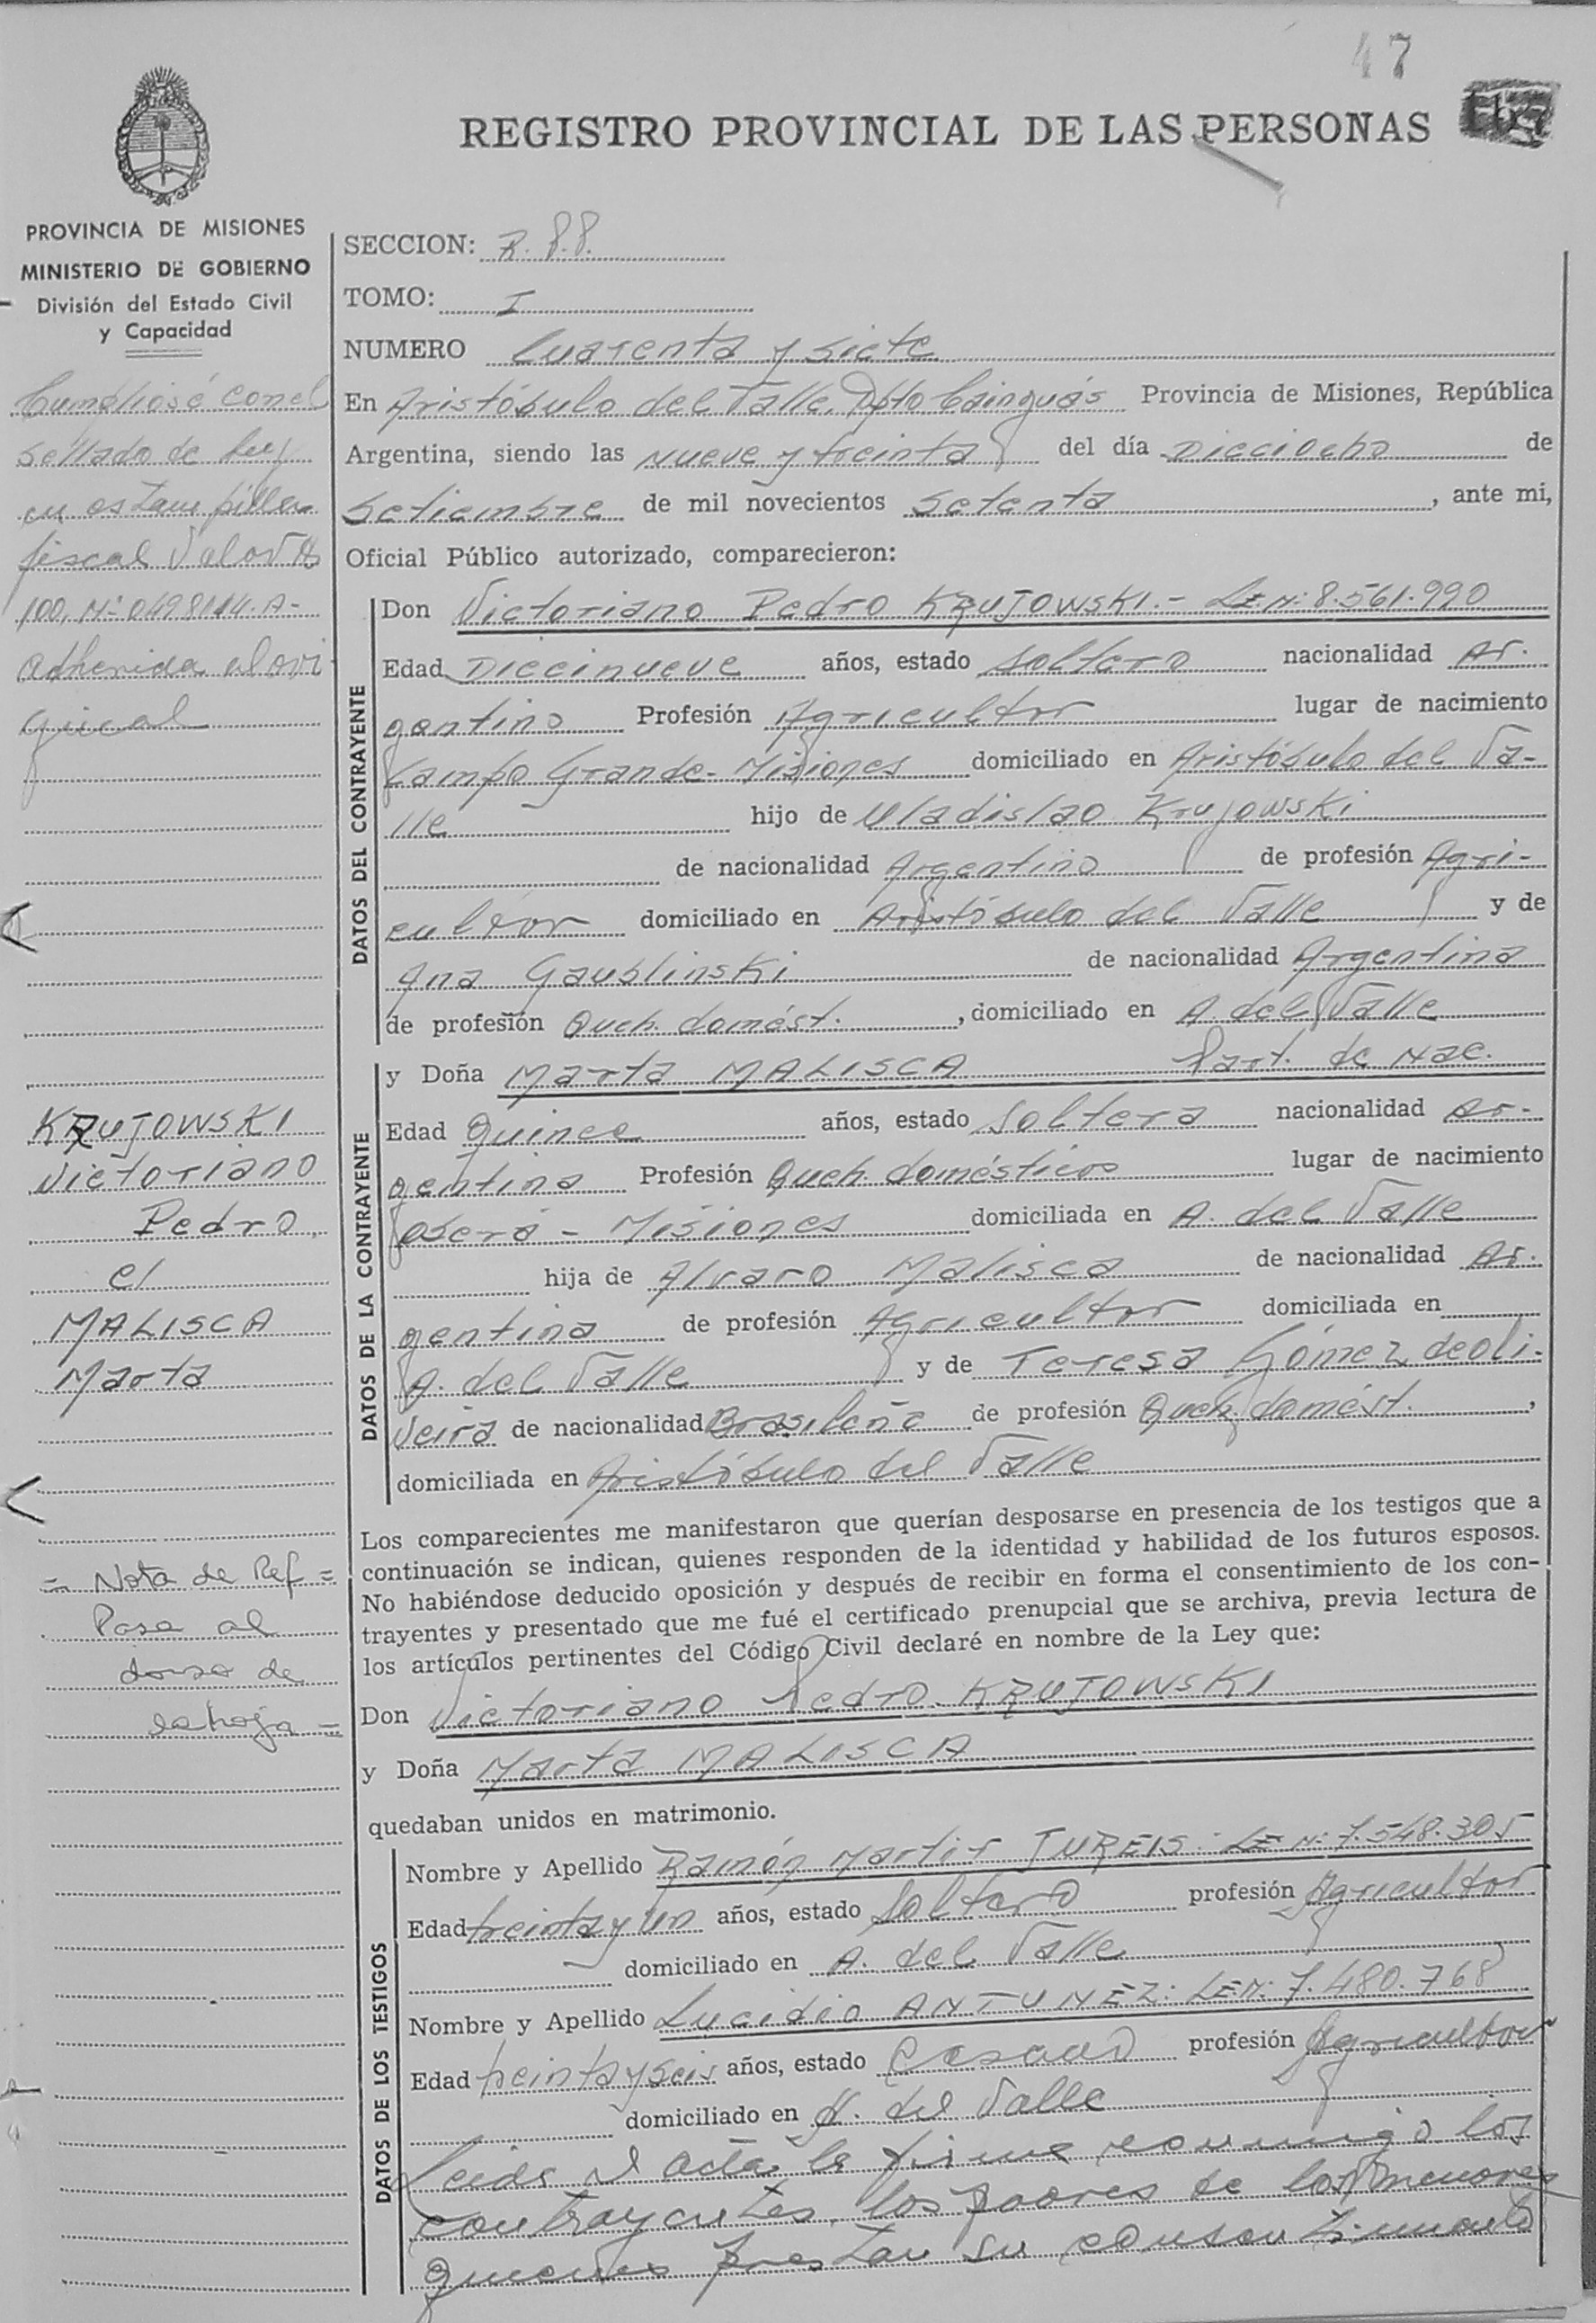 47
REGISTRO PROVINCIAL DE LAS PERSONAS
PROVINCIA DE MISIONES
MINISTERIO DE GOBIERNO
División del Estado Civil
y Capacidad
Cumpliose con el
sellado de ley
en estampilla
fiscal valor $
100, Nº 0498114.A-
adherida al ori
ginal
KRUJOWSKI
Victoriano
Pedro
c/
MALISCA
Marta
= Nota de Ref =
Pasa al
dorso de
la hoja =
SECCION: R. P.P.
TOMO: I
NUMERO Cuarenta y siete
En Aristóbulo del Valle, Dpto Cainguás Provincia de Misiones, República
Argentina, siendo las Nueve y treinta del día Dieciocho de
Setiembre de mil novecientos Setenta , ante mi,
Oficial Público autorizado, comparecieron:
DATOS DEL CONTRAYENTE
Don Victoriano Pedro KRUJOWSKI.- LE.Nº: 8.561.990
Edad Diecinueve años, estado Soltero nacionalidad Ar-
gentino Profesión Agricultor lugar de nacimiento
Campo Grande- Misiones domiciliado en Aristóbulo del Va-
lle hijo de Uladislao Krujowski
de nacionalidad Argentino de profesión Agri-
cultor domiciliado en Aristóbulo del Valle y de
Ana Gaublinski de nacionalidad Argentina
de profesión Queh. domést. , domiciliado en A. del Valle
DATOS DE LA CONTRAYENTE
y Doña Marta MALISCA Part. de Nac.
Edad Quince años, estado Soltera nacionalidad Ar-
gentina Profesión Queh. domésticos lugar de nacimiento
Oberá - Misiones domiciliada en A. del Valle
hija de Alvaro Malisca de nacionalidad Ar-
gentina de profesión Agricultor domiciliada en
A. del Valle y de Teresa Gómez de Oli-
veira de nacionalidad Brasileña de profesión Queh. domést. ,
domiciliada en Aristóbulo del Valle
Los comparecientes me manifestaron que querían desposarse en presencia de los testigos que a
continuación se indican, quienes responden de la identidad y habilidad de los futuros esposos.
No habiéndose deducido oposición y después de recibir en forma el consentimiento de los con-
trayentes y presentado que me fué el certificado prenupcial que se archiva, previa lectura de
los artículos pertinentes del Código Civil declaré en nombre de la Ley que:
Don Victoriano Pedro KRUJOWSKI
y Doña Marta MALISCA
quedaban unidos en matrimonio.
DATOS DE LOS TESTIGOS
Nombre y Apellido Ramón Martir JUREIS: LE Nº: 7.548.305
Edad treinta y un años, estado Soltero profesión Agricultor
domiciliado en A. del Valle
Nombre y Apellido Lucidio ANTUNEZ: LE.Nº: 7.480.768
Edad treinta y seis años, estado Casado profesión Agricultor
domiciliado en A. del Valle
Leida el acta la firman conmigo los
contrayentes, los padres de los menores
quienes prestan su consentimiento